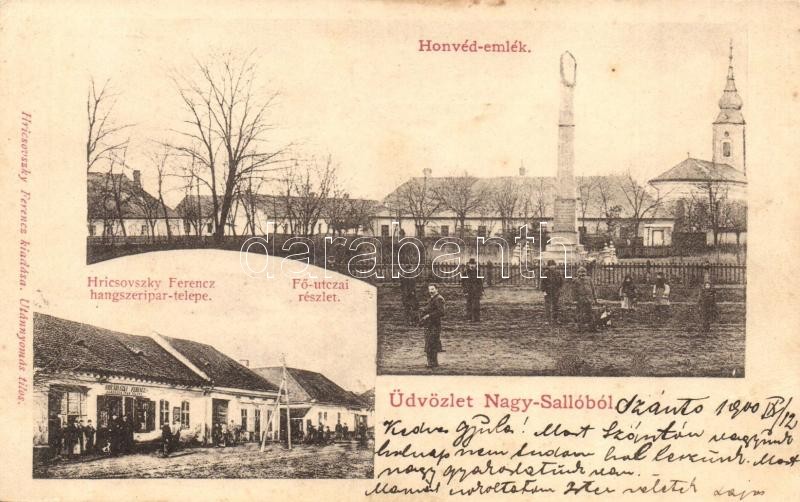 Honvéd-emlék.
Hricsovszky Ferencz kiadása. Utánnyomás tilos.
Hricsovszky Ferencz
hangszeripar-telepe.
Fő-utczai
részlet.
darabanth
Üdvözlet Nagy-Sallóból.
Szántó 1900 IX/12
Kedves Gyula! Most Szántón vagyunk
holnap nem tudom hol leszünk. Most
nagy gyakorlatunk van.
Lajos